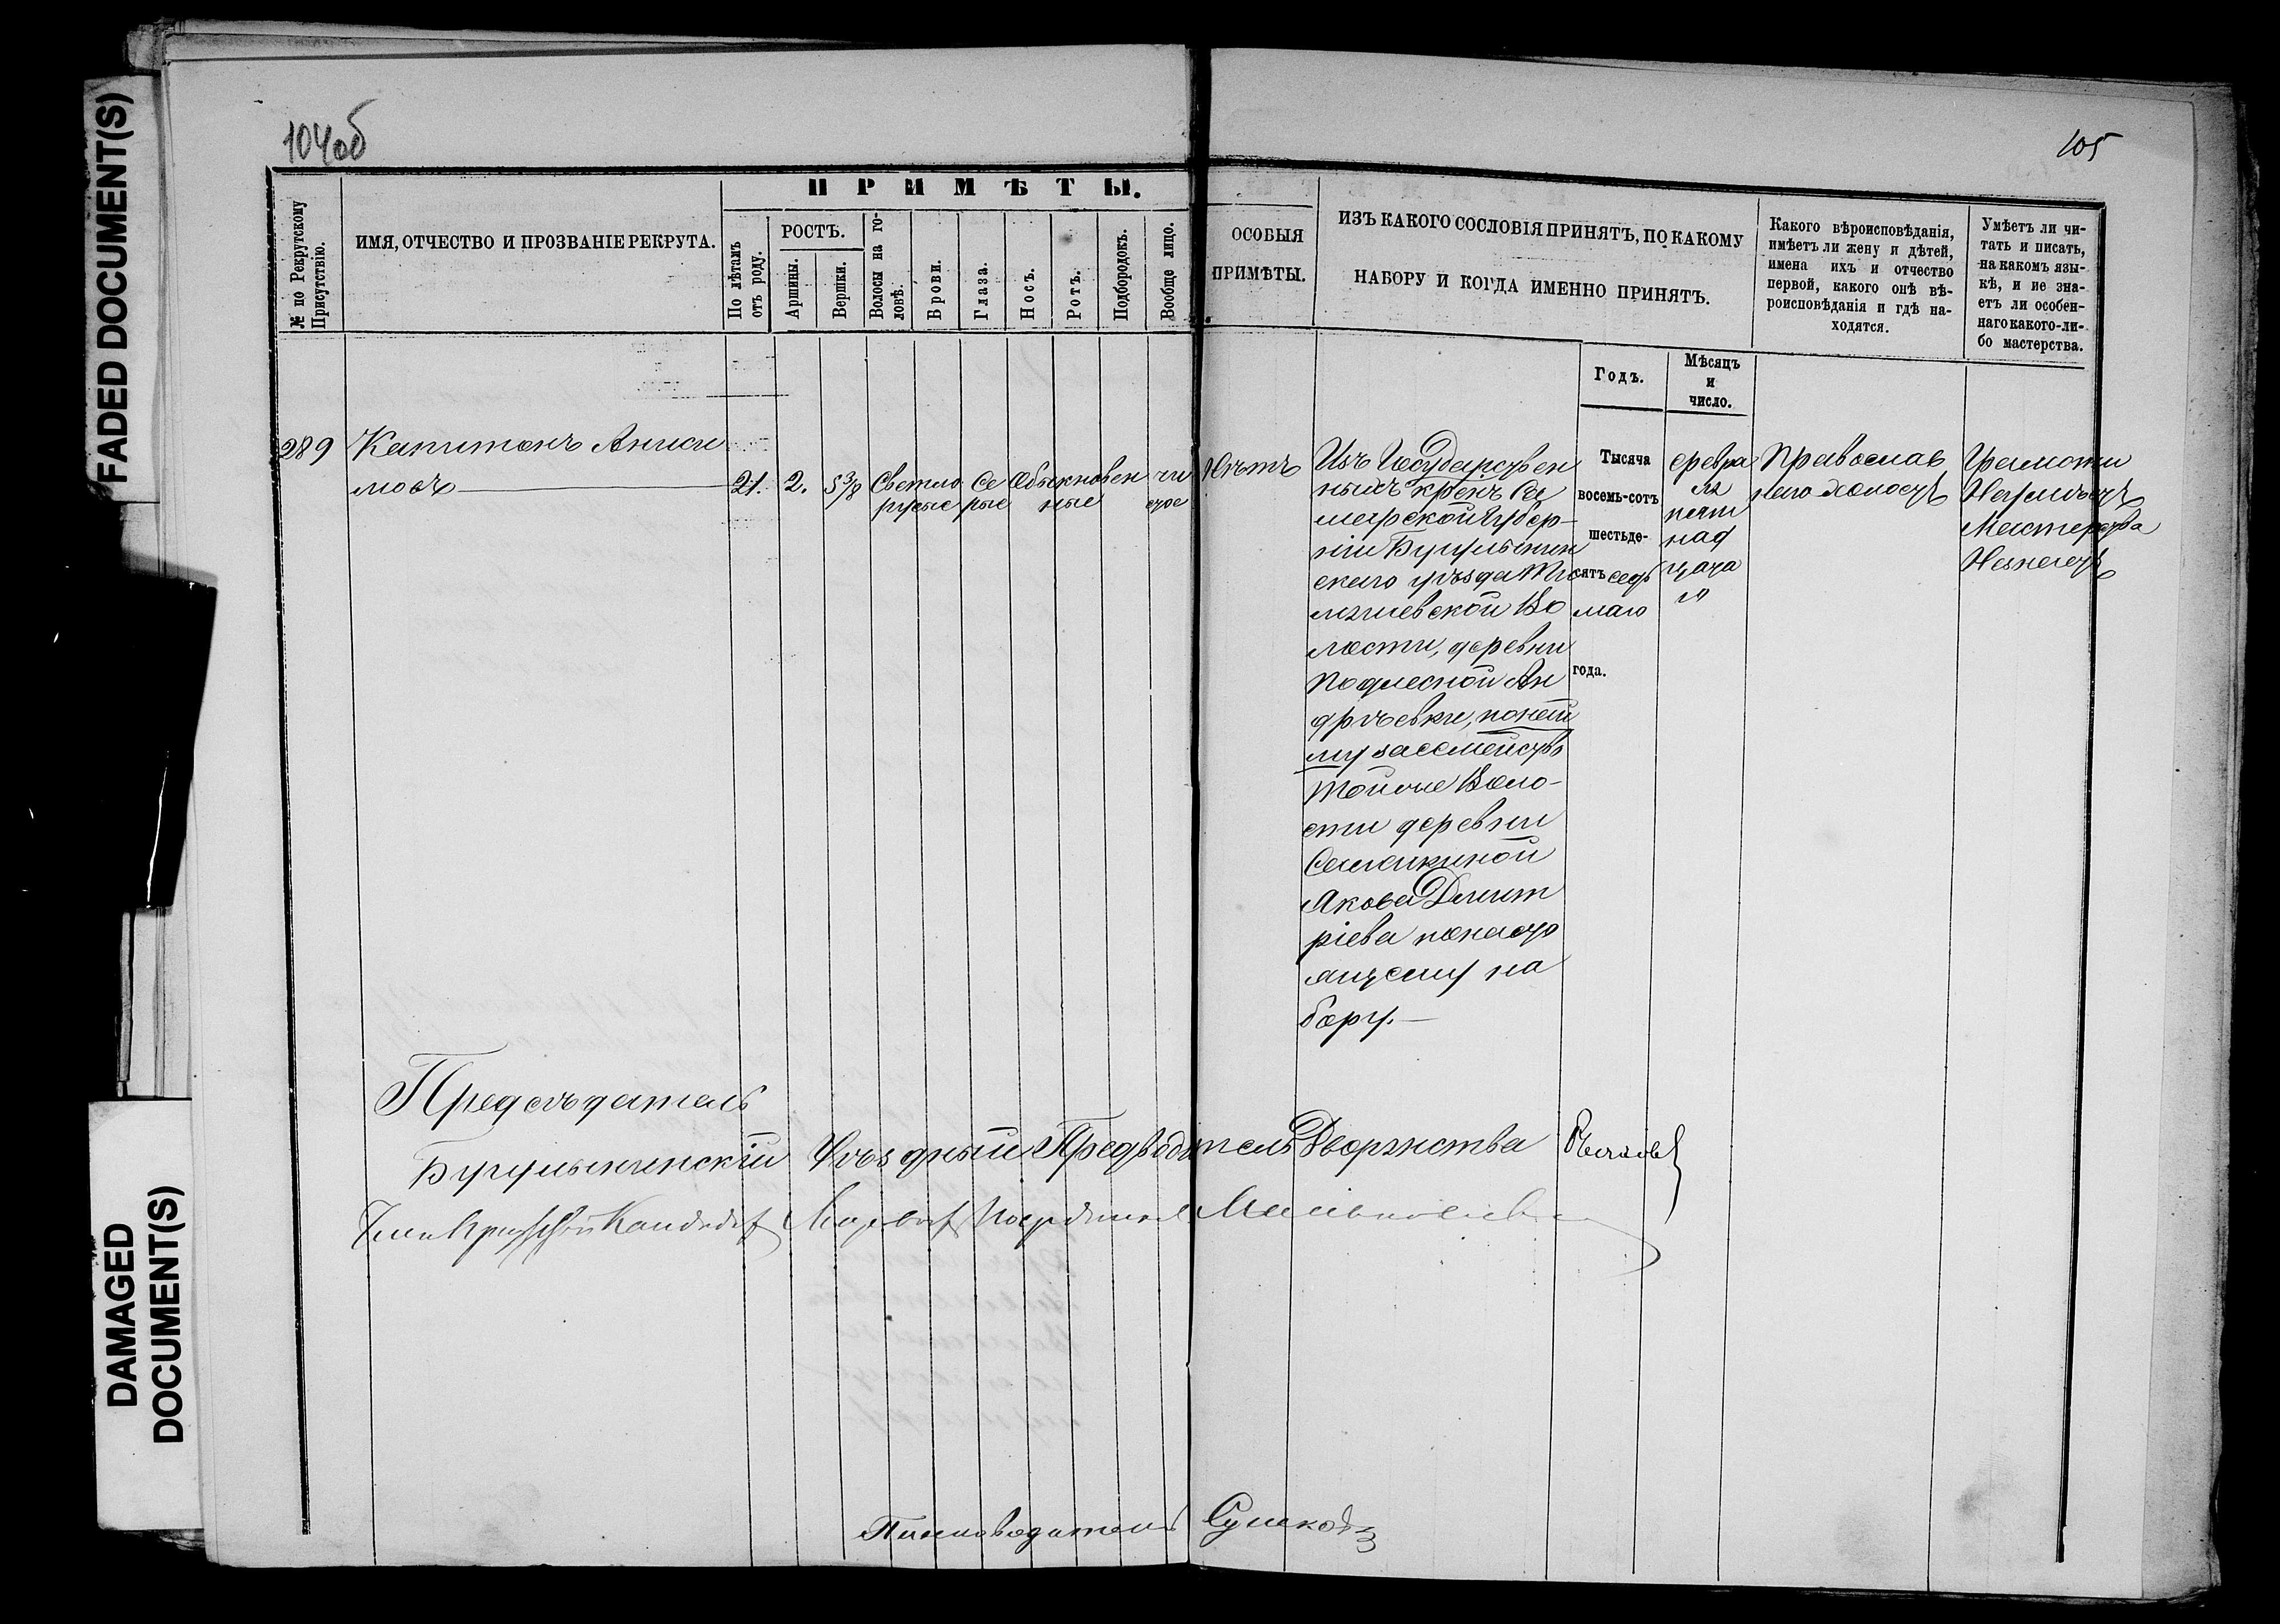 FADED DOCUMENT(S)
DAMAGED
DOCUMENT(S)
104об
105
№ по Рекрутскому
Присутствію.
ИМЯ, ОТЧЕСТВО И ПРОЗВАНІЕ РЕКРУТА.
ПРИМѢТЫ.
По лѣтамъ
отъ роду.
РОСТЪ.
Аршины.
Вершки.
Волосы на го-
ловѣ.
Брови.
Глаза.
Носъ.
Ротъ.
Подбородокъ.
Вообще лицо.
ОСОБЫЯ
ПРИМѢТЫ.
ИЗЪ КАКОГО СОСЛОВІЯ ПРИНЯТЪ, ПО КАКОМУ
НАБОРУ И КОГДА ИМЕННО ПРИНЯТЪ.
Годъ.
Мѣсяцъ
и
число.
Какого вѣроисповѣданія,
имѣетъ ли жену и дѣтей,
имена ихъ и отчество
первой, какого онѣ вѣ-
роисповѣданія и гдѣ на-
ходятся.
Умѣетъ ли чи-
тать и писать,
на какомъ язы-
кѣ, и не зна-
етъ ли особен-
наго какого-ли-
бо мастерства.
289
Капитонъ Аниси
мовъ
21.
2.
5 3/8
Светло
русые
Се
рые
Обыкновен
ные
чи
стое
Нѣтъ
Изъ Государствен
ныхъ крснъ Са
марской Губер-
ніи Бугульмин
скаго уѣзда
Во
лости, деревни
Подлесной Ан
дрѣевки,
му засемейств
Тойже Воло-
сти деревни
Якова Дмит
ріева понасто
ящему на
бору.
Тысяча
восемь-сотъ
шестьде-
сятъ седь
маго
года.
февра
ля
пят
над
цата
го
Православ
наго холостъ
Грамоти
Неумѣетъ
Мастерства
Незнаетъ
Предсѣдатель
Бугульминскій Уѣздный Предводитель Дворянства
Сушковъ